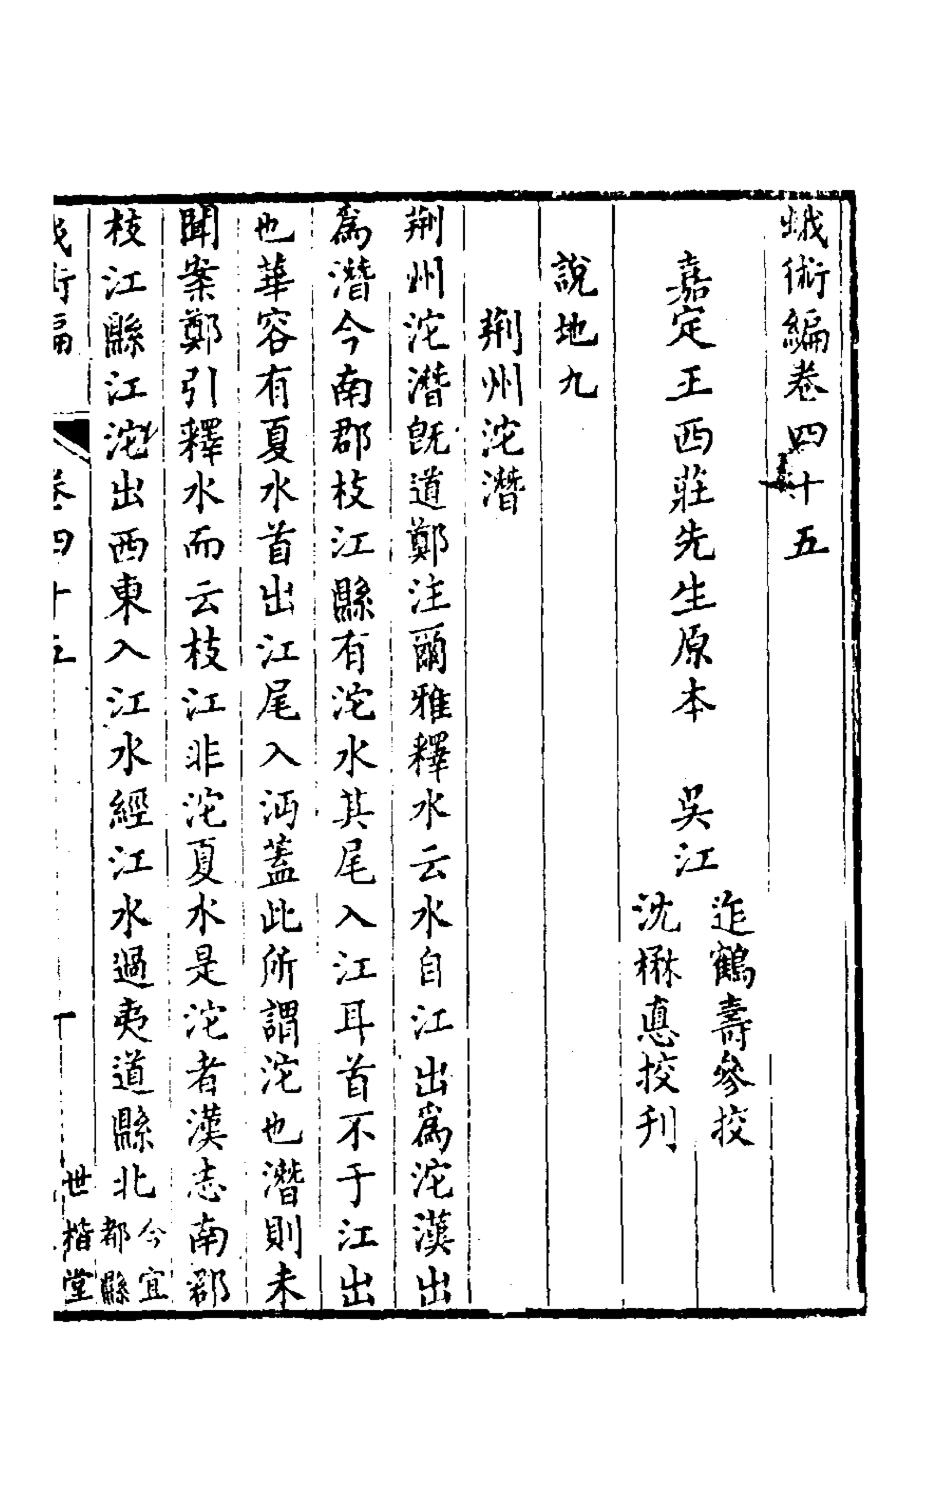 蛾術編卷四十五
嘉定王西莊先生原本　吳江
迮鶴壽參挍
沈楙悳挍刋
說地九
荆州沱潛
荆州沱潛旣道鄭注爾雅釋水云水自江出爲沱漢出
爲潛今南郡枝江縣有沱水其尾入江耳首不于江出
也華容有夏水首出江尾入沔蓋此所謂沱也潛則未
聞案鄭引釋水而云枝江非沱夏水是沱者漢志南郡
枝江縣江沱出西東入江水經江水過夷道縣北今宜
都縣
卷四十五
世楷堂